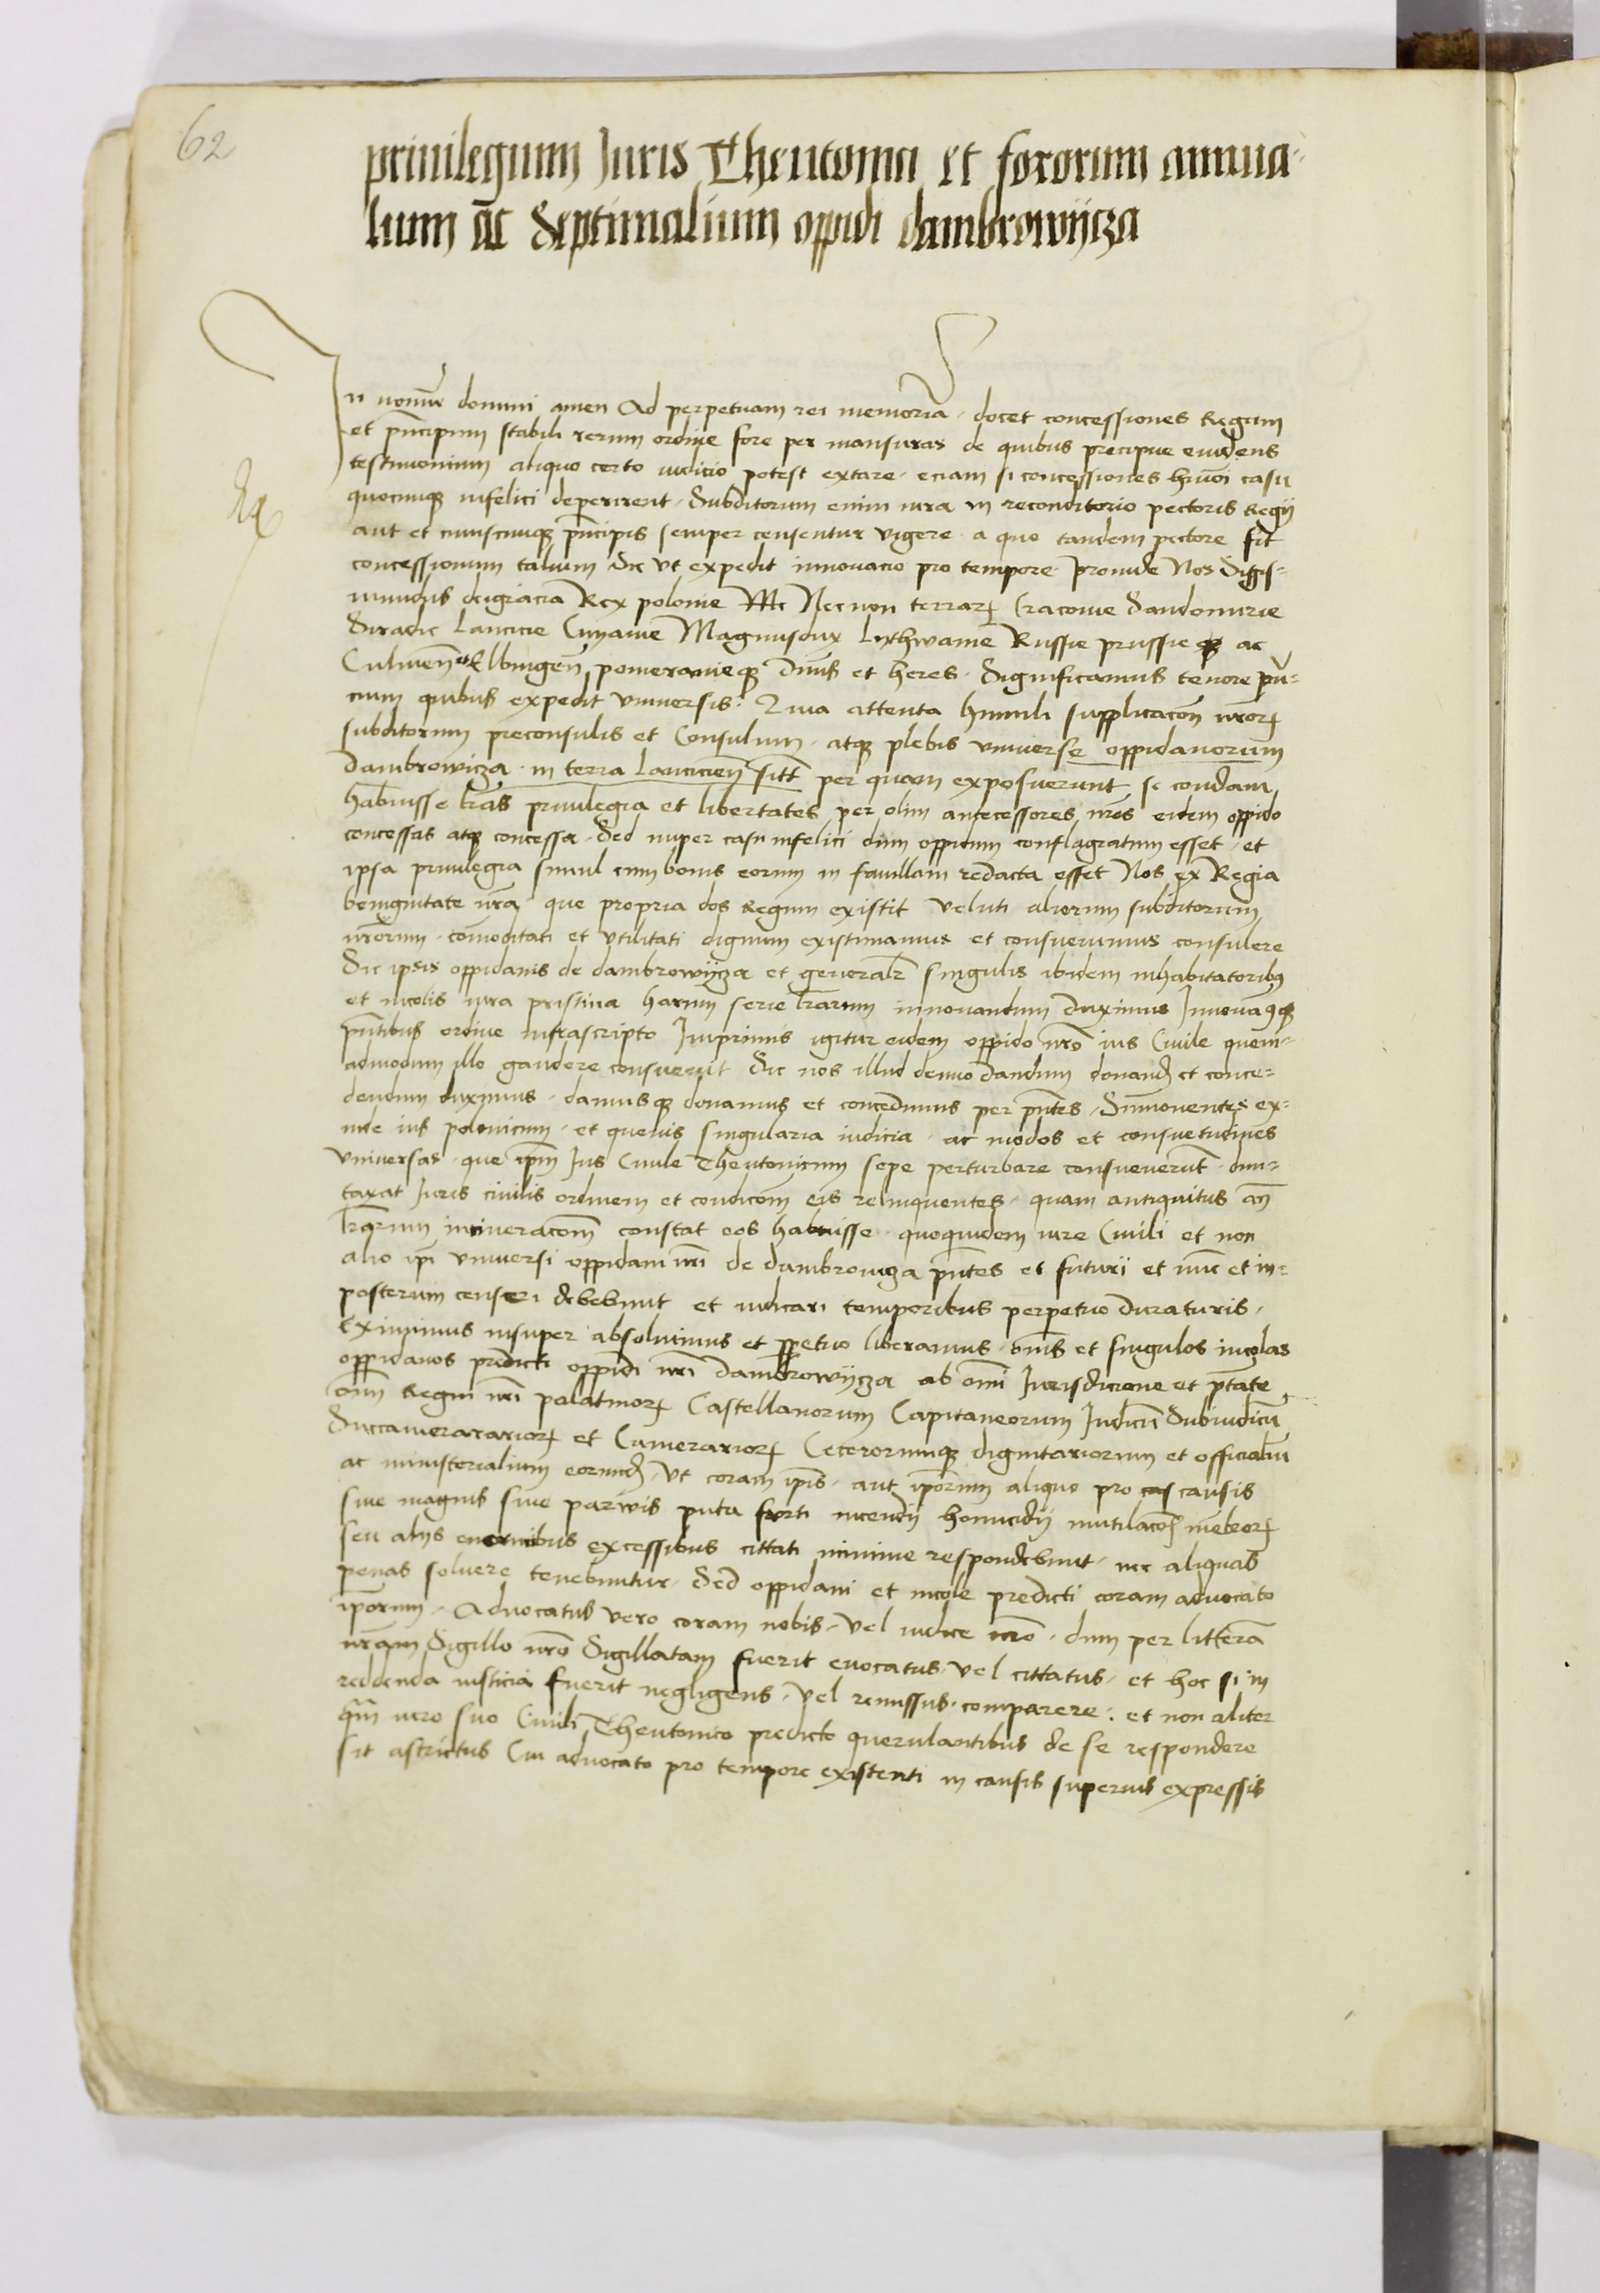 62
privilegium Juris Theutonici et fororum annua-
lium ac Septimalium oppidi dambrowijcza
In nomine domini amen Ad perpetuam rei memoriā. docet concessiones Regum
et principum stabili rerum ordine fore per mansuras de quibus precipue evidens
testimonium aliquo certo iudicio potest extare. eciam si concessiones hmōi casu
quocunq infelici deperirent. Subditorum enim iura in reconditorio pectoris Regij
aut et cuiuscunq principis semper censentur vigere a quo tandem pectore fit
concessionum talium Sic vt expedit innovacio pro tempore. proinde Nos Sigis-
mundus deigracia Rex polonie Nec non terrarz Cracovie Sandomirie
Siradie Lancicie Cuyavie Magnusdux Lythwanie Russie prussieq ac
Culmen̄ et Elbingen̄ pomeranieq dnūs et heres. Significamus tenore pn̄-
cium quibus expedit vniversis. Quia attenta humili supplicacōn nrōrz
subditorum preconsulis et Consulum. atq plebis vniverse oppidanorum
dambrowicza. in terra Lancicien̄ sitt̄ per quam exposuerunt se condam
habuisse lrās privilegia et libertates per olim antecessores nrōs eidem oppido
concessas atq concessa. Sed nuper casu infelici dum oppidum conflagratum esset. et
ipsa privilegia simul cum bonis eorum in favillam redacta esset Nos ex Regia
benignitate nrā que propria dos Regum existit veluti aliorum subditorum
nrōrum. comoditati et vtilitati dignum existimamus et consuevimus consulere
Sic ipsis oppidanis de dambrowijcza et generalr singulis ibidem inhabitatoribus
et incolis iura pristina harum serie lrārum innovandum duximus Innovamusq
pn̄tibus ordine infrascripto Imprimis igitur eidem oppido nrō ius Civile quem-
admodum illo gaudere consuevit Sic nos illud denuo dandum donandz et conce-
dendum duximus. damusq donamus et concedimus per pn̄tes. Summoventes ex-
inde ius polonicum. et quevis singularia iudicia. ac modos et consuetudines
vniversas. que ipm̄ Ius Civile Theutonicum sepe perturbare consueverūt. dun-
taxat Juris civilis ordinem et condicōm eis relinquentes. quam antiquitus an̄
lrārum incineracōm constat eos habuisse. quoquidem iure Civili et non
alio ipī vniversi oppidani nrī de dambrowicza pn̄tes et futuri et nūc et in-
posterum censeri debebunt et iudicari temporibus perpetuo duraturis.
Eximimus insuper absolvimus et ppetuo liberamus. omēs et singulos incolas
oppidanos predicti oppidi nrī dambrowijcza ab omī Jurisdicione et ptāte
oīm Regni nrī palatinorz Castellanorum Capitaneorum Judicū Subiudicū
Succamerarariorz et Camerariorz Ceterorumq dignitariorum et officialiū
ac ministerialium eorundz. vt coram ipīs. aut ipōrum aliquo pro causis
sive magnis sive parwis puta furti incendij homicidij mutilacōnz mēbrorz
seu alijs enormibus excessibus cittati minime respondebunt. nec aliquas
penas solvere tenebuntur. Sed oppidani et incole predicti coram advocato
ipōrum. Advocatus vero coram nobis. vel iudice nrō. dum per litterā
nrām Sigillo nrō Sigillatam fuerit evocatus. vel cittatus. et hoc si in
reddenda iusticia fuerit negligens. vel remissus. comparere: et non aliter
qm̄ iure suo Civili Theutonico predicto querulantibus de se respondere
sit astrictus Cui advocato pro tempore existenti in causis superius expressis